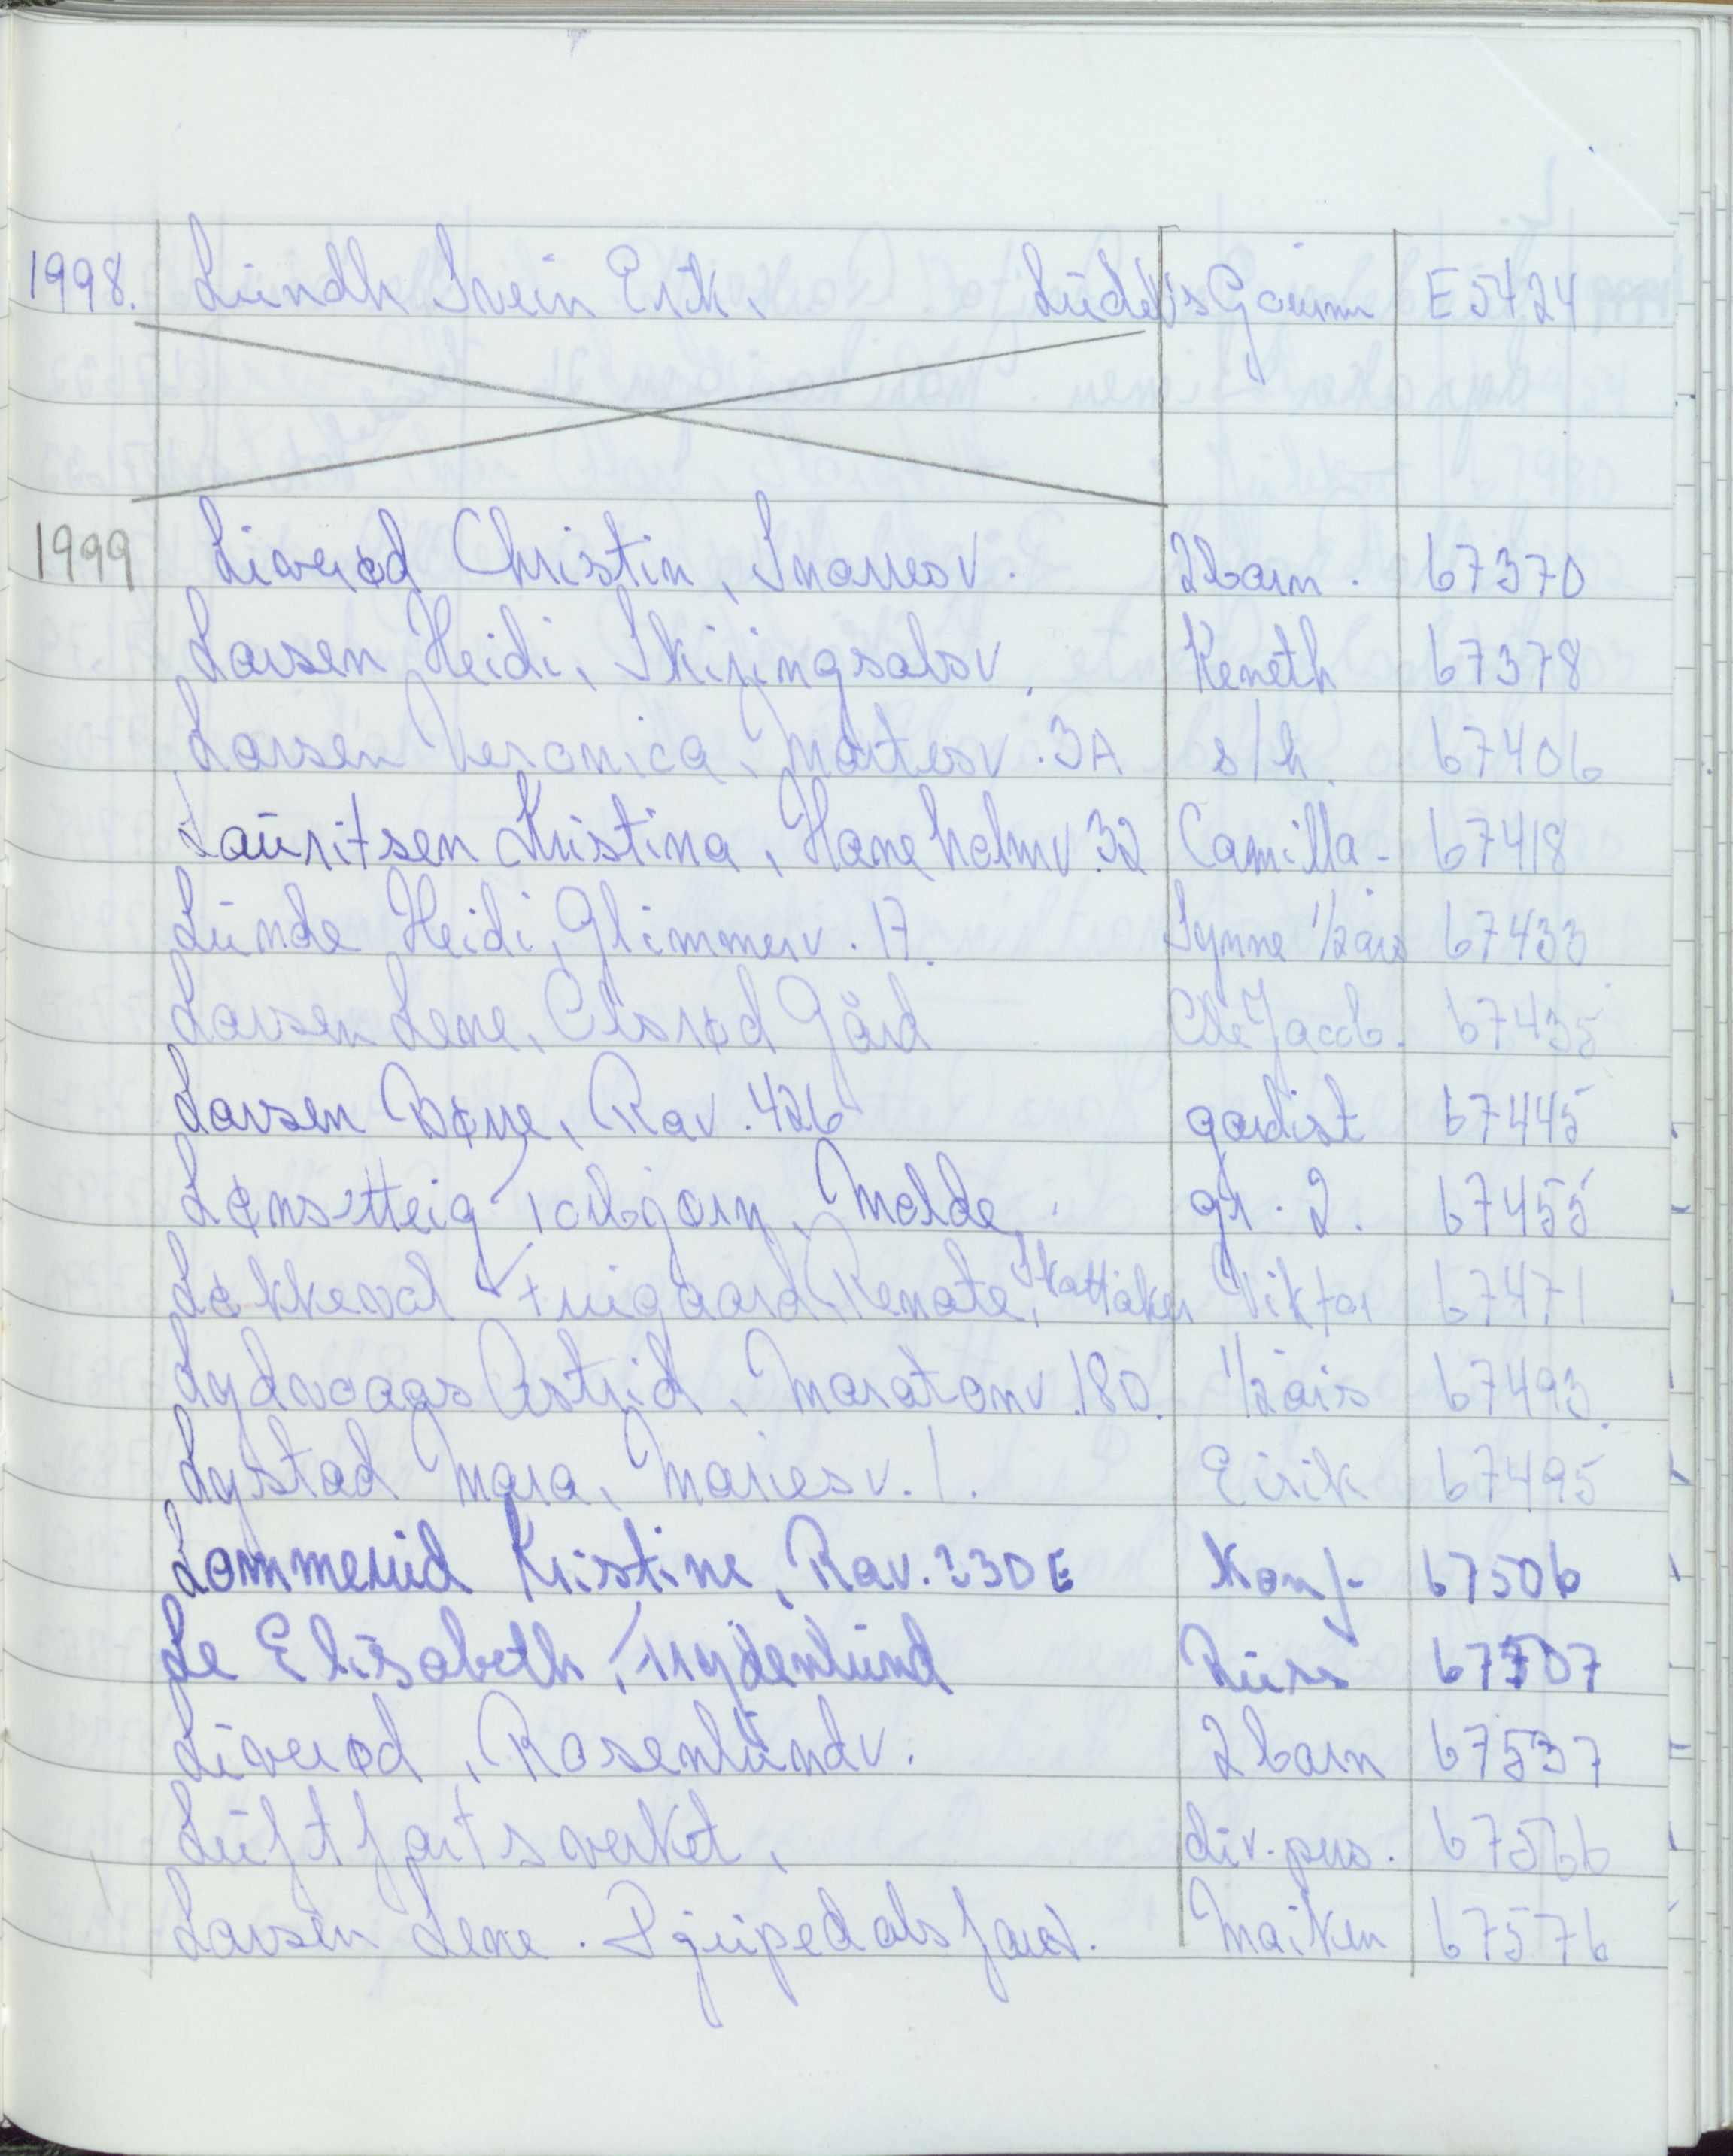 1998. Lundh Svein Erik, Ludvigs Gourm E5424
1999 Liverød Christin, Snorresv. 2 barn. 67370
Larsen Heidi, Skiringsalsv. Keneth 67378
Larsen Veronica, Mattesv. 3A s/h. 67406
Lauritsen Kristina, Haneholmv. 32 Camilla - 67418
Lunde Heidi, Glimmerv. 17. Synne 1/2 års 67433
Larsen Lene, Olsrød Gård Ole Jacob. 67435
Larsen Børre, Rav. 426 gardist 67445
Lønsetteig Torbjørn, Molde, gr. 2. 67455
Løkkevol Furigaard Renate, Skattåker Viktor 67471
Lydvoags Astrid, Maratonv. 180. 1/2 års 67493.
Lystad Mara, Mariesv. 1. Eirik 67495
Lommerud Kristine, Rav. 230 E Konf- 67506
Le Elisabeth, Frydenlund Russ 67507
Liverød, Rosenlundv. 2 barn 67537
Luftfartsverket, div. pers. 67566
Larsen Lene. Maiken 67576